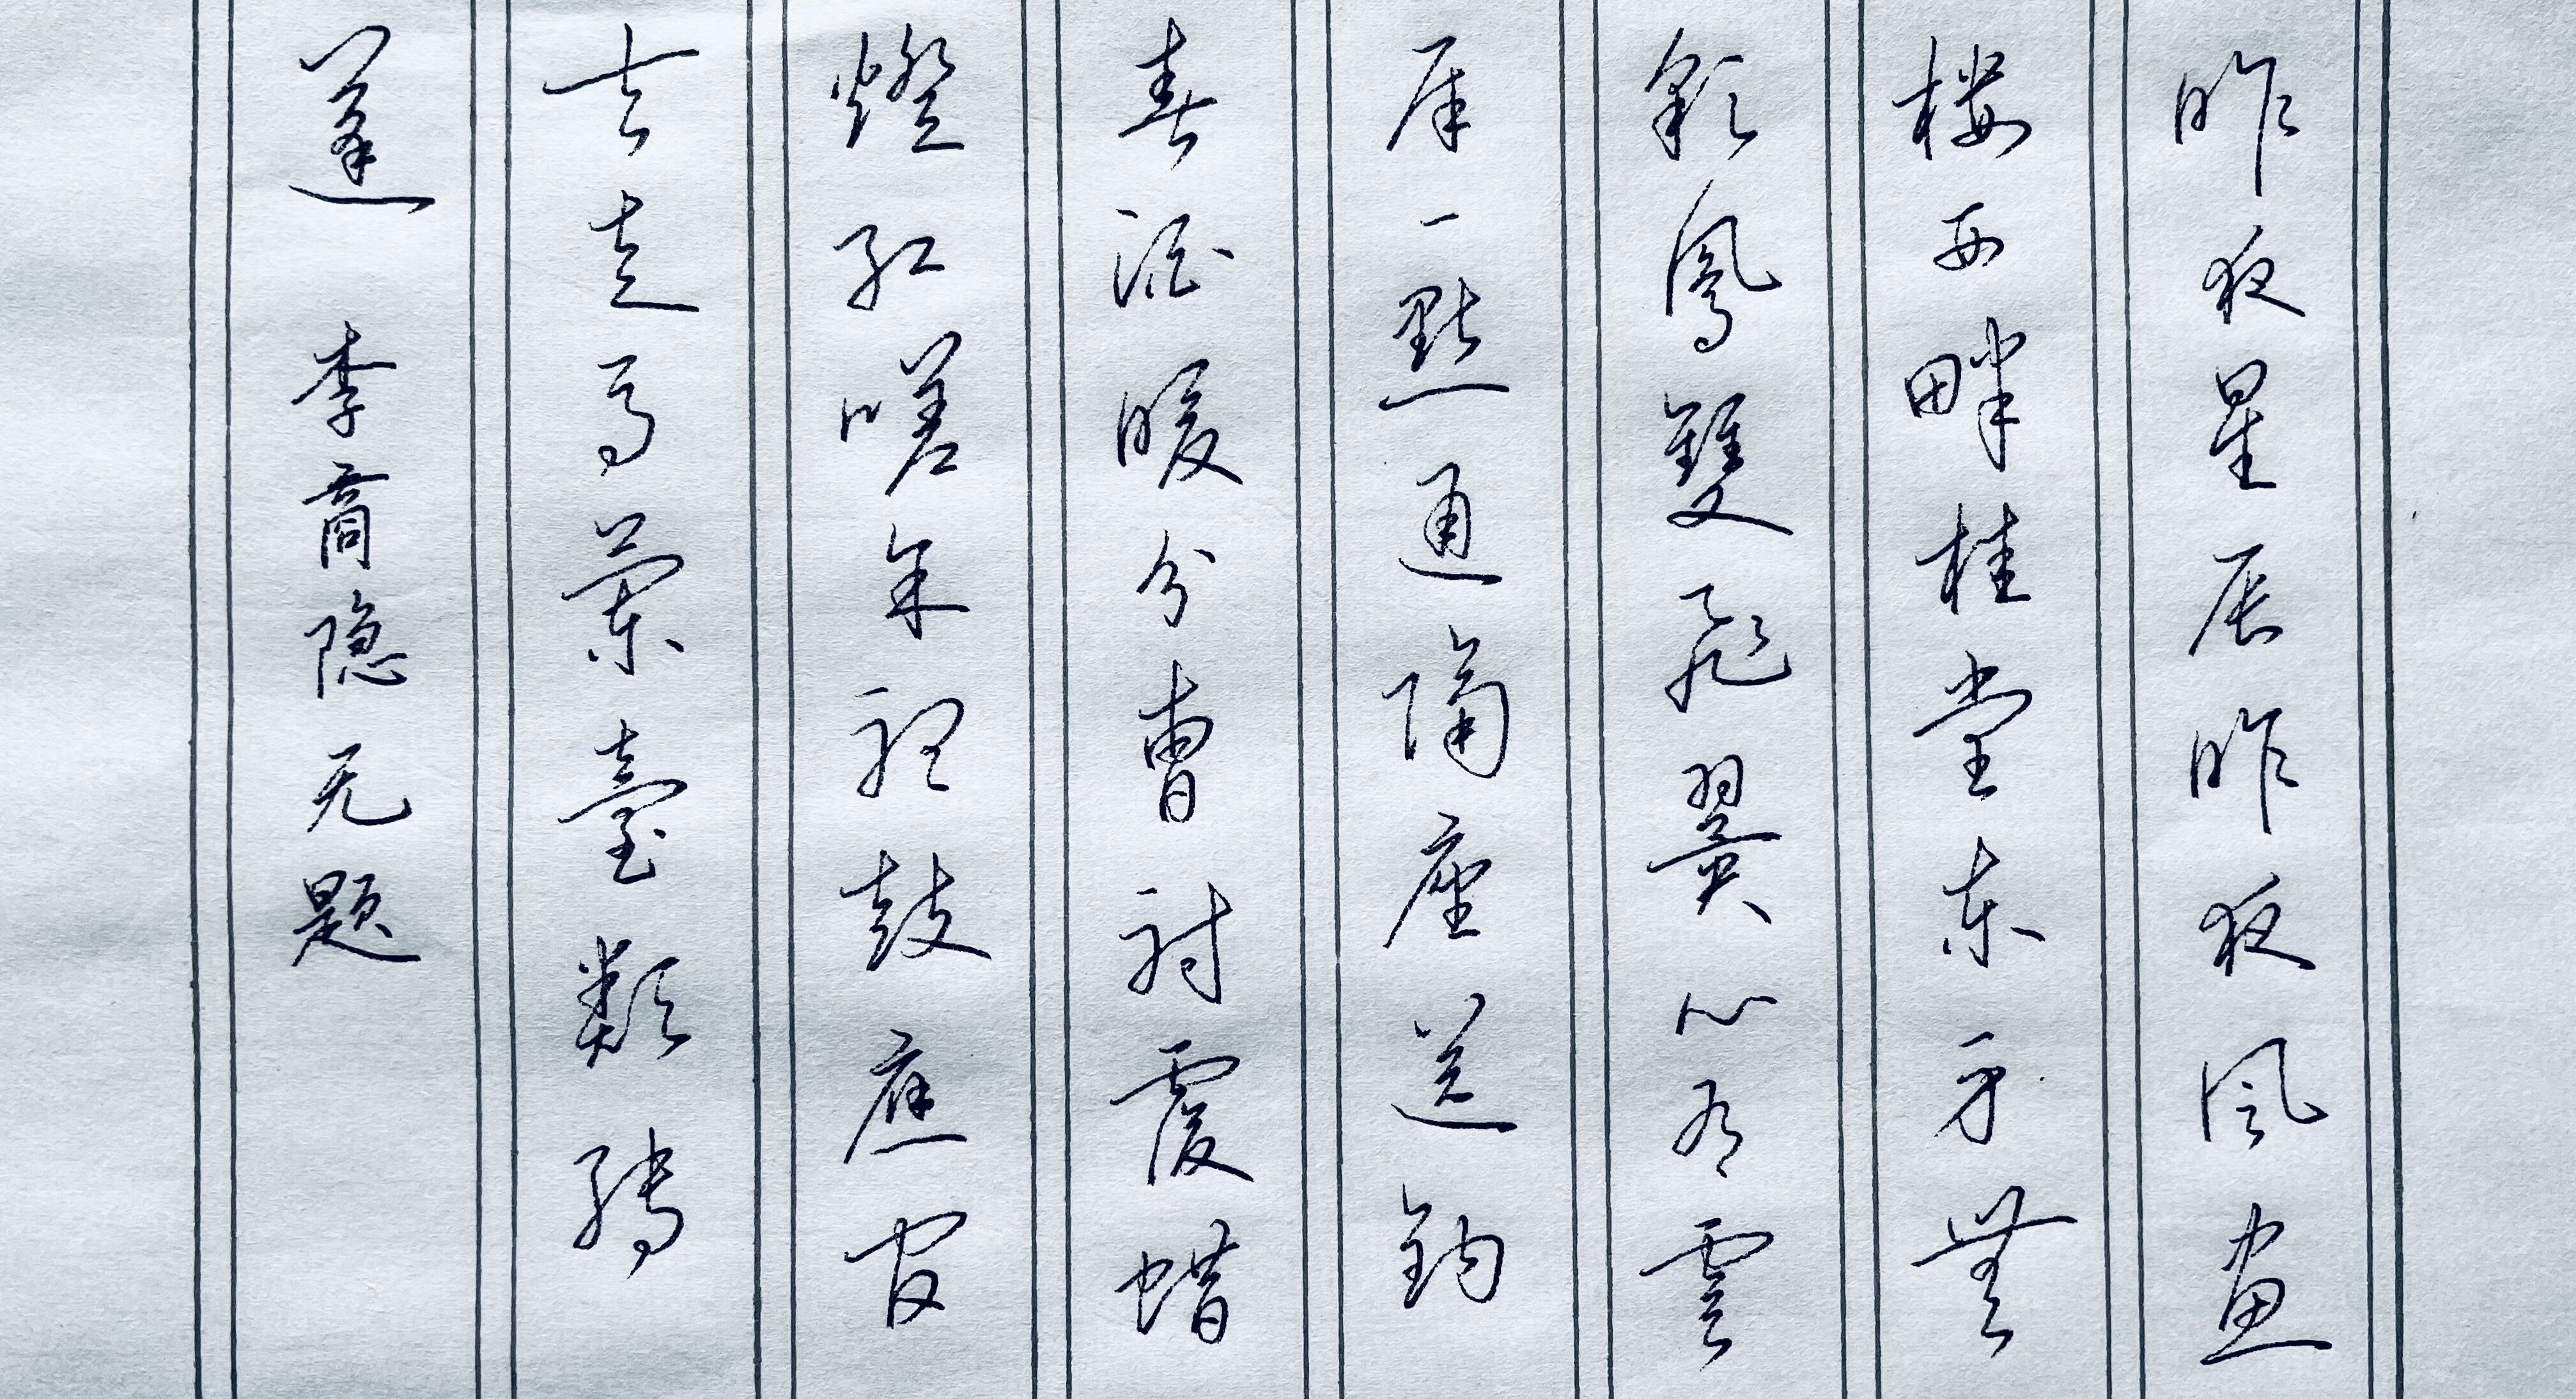 昨夜星辰昨夜風畫
樓西畔桂堂東身無
彩鳳雙飛翼心有靈
犀一點通隔座送鈎
春酒暖分曹射覆蜡
燈紅嗟余聽鼓應官
去走馬蘭臺類轉
蓬 李商隐无题